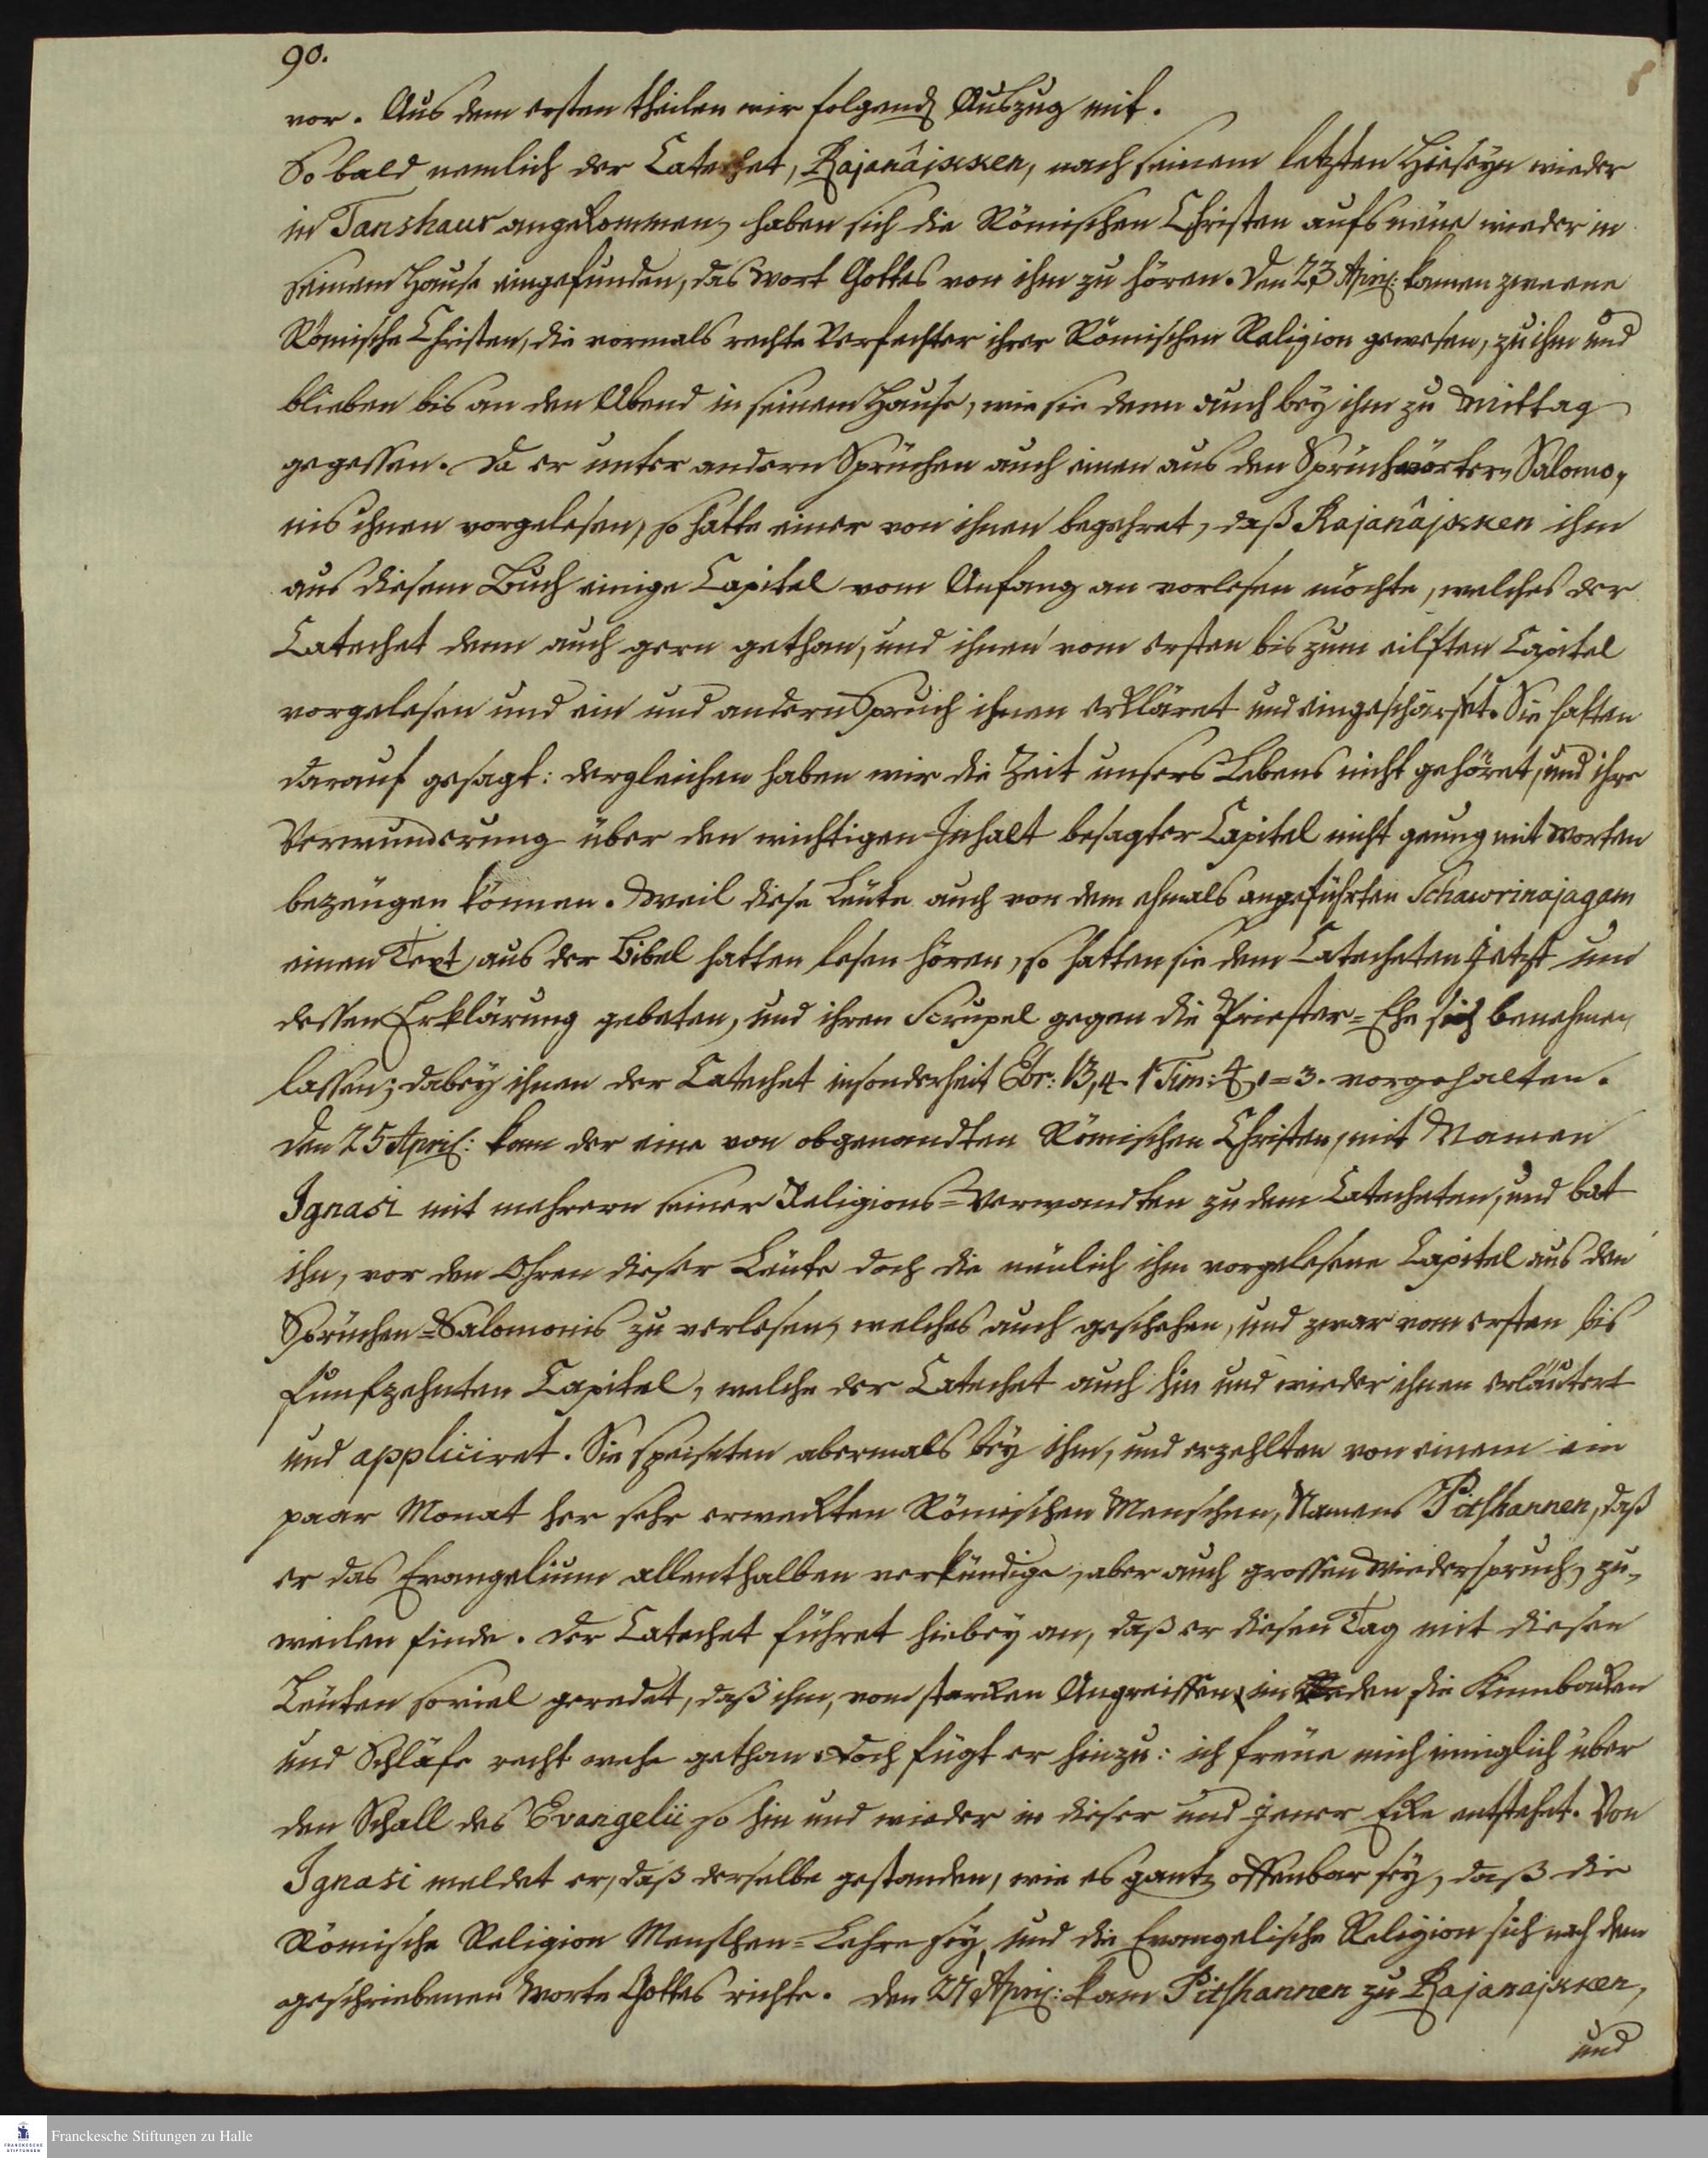 90.
vor. Aus dem ersten theilen wir folgend Auszug mit.
So bald nemlich der Catechet, Rajanâjxxen, nach seinem letzten Hieseyn wieder
in Tanshaur angekommen, haben sich die Römischen Christen aufs neüe wieder in
seinem Hause eingefunden, das Wort Gottes von ihm zu hören. Den 23 April: kamen zweene
Römische Christen, die vormals rechte Verfechter ihrer Römischen Religion gewesen, zu ihm und
blieben bis an den Abend in seinem Hause, wie sie denn auch bey ihm zu Mittag
gegessen. Da er unter andern Sprüchen auch einen aus den Sprüchwörtern Salomo-
nis ihnen vorgelesen, so hatte einer von ihnen begehret, daß Rajanâjxxen ihm
aus diesem Buch einige Capitel vom Anfang an vorlesen möchte, welches der
Catechet denn auch gern gethan, und ihnen vom ersten bis zum eilften Capitel
vorgelesen und ein und andern Spruch ihnen erkläret und eingeschärfet. Sie hatten
darauf gesagt: dergleichen haben wir die Zeit unsers Lebens nicht gehöret, und ihre
Verwunderung über den wichtigen Inhalt besagter Capitel nicht genug mit Worten
bezeügen können. Weil diese Leüte auch von dem ehmals angeführten Schawrinajagam
einen Text aus der Bibel hatten lesen hören, so hatten sie dem Catecheten jetzt um
dessen Erklärung gebeten, und ihren Scrupel gegen die Priester-Ehe sich benehmen
lassen; dabey ihnen der Catechet insonderheit Ebr: 13,4. 1 Tim: 4, 1=3. vorgehalten.
Den 25 April: kam der eine von obgenandten Römischen Christen, mit Namen
Ignasi mit mehrern seiner Religions-Verwandten zu dem Catecheten, und bat
ihn, vor den Ohren dieser Leüte doch die neülich ihm vorgelesene Capitel aus den
Sprüchen-Salomonis zu verlesen, welches auch geschehen, und zwar vom ersten bis
funfzehnten Capitel, welche der Catechet auch hin und wieder ihnen erläutert
und appliciret. Sie speiseten abermals bey ihm, und erzehlten von einem ein
paar Monat her sehr erweckten Römischen Menschen, Namens Pitshannen, daß
er das Evangelium allenthalben verkündige, aber auch grossen Wiederspruch zu-
weilen finde. Der Catechet führet hiebey an, daß er diesen Tag mit diesen
Leüten soviel geredet, daß ihm, vom starken Angreiffen im Reden die Kinnbacken
und Schläfe recht wehe gethan. Doch fügt er hinzu: ich freüe mich inniglich über
den Schall des Evangelii so hin und wieder in dieser und jener Ecke entstehet. Von
Ignasi meldet er, daß derselbe gestanden, wie es gantz offenbar sey, daß die
Römische Religion Menschen-Lehre sey, und die Evangelische Religion sich nach dem
geschriebenen Worte Gottes richte. Den 27 April: kam Pitshannen zu Rajanajxxen,
und
Franckesche Stiftungen zu Halle